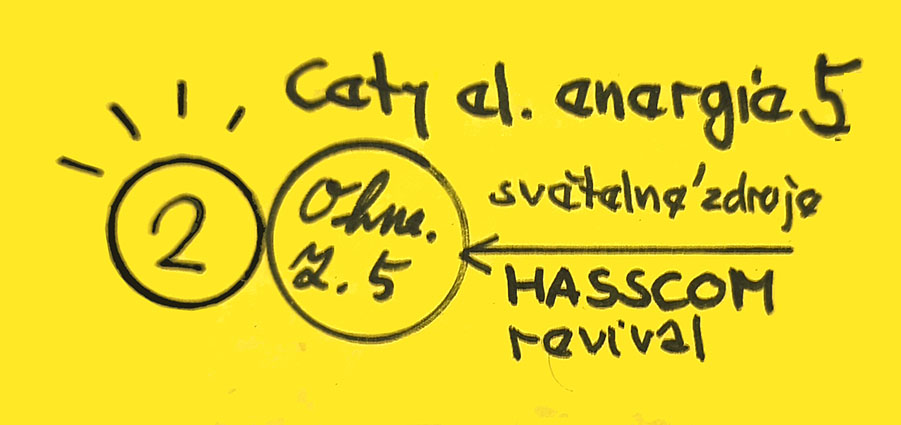 Caty el. energie 5
světelné zdroje
2
Ohne.
Z. 5
HASSCOM
revival